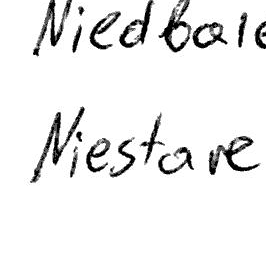 Niedbale
Niestare